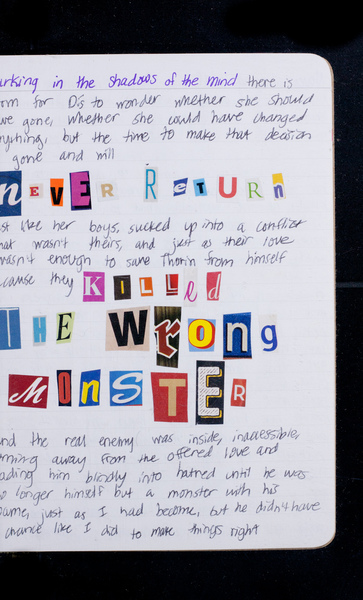 arking in the shadows of the mind there is
for Dís to wonder whether she should
gone, whether she could have changed
nything, but the time to make that decision
gone and will
nEVER RETURN
st like her boys, sucked up into a conflict
hat wasn't theirs, and just as their love
wasn't enough to save Thorin from himself
cause they KILLed
THE WrOng
MOnSTER
nd the real enemy was inside, inaccessible,
rning away from the offered love and
ading him blindly into hatred until he was
o longer himself but a monster with his
ame, just as I had become, but he didn't have
chance like I did to make things right